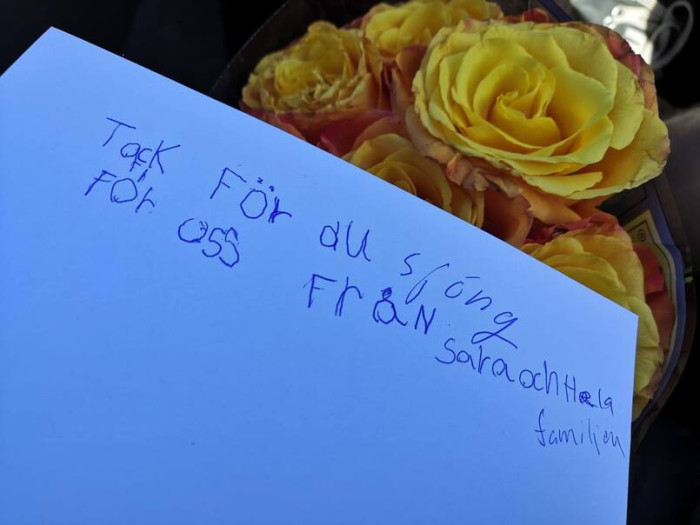 Tack FöR du sjöng
FÖR OSS FRÅN
Sara och Hela
familjen